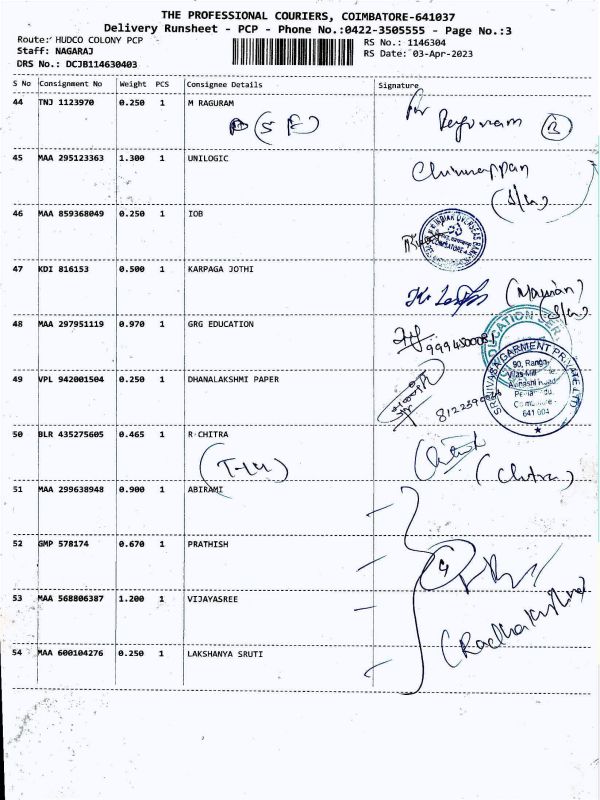 THE PROFESSIONAL COURIERS, COIMBATORE-641037
Delivery Runsheet - PCP - Phone No.:0422-3505555 - Page No.:3
Route: HUDCO COLONY PCP
RS No.: 1146304
Staff: NAGARAJ
RS Date: 03-Apr-2023
DRS No.: DCJB114630403
S No Consignment No Weight PCS Consignee Details Signature
44 TNJ 1123970 0.250 1 M RAGURAM
Raguram
45 MAA 295123363 1.300 1 UNILOGIC
Chinnappan
(S/G)
46 MAA 859368049 0.250 1 IOB
INDIAN OVERSEAS BANK
COIMBATORE
47 KDI 816153 0.500 1 KARPAGA JOTHI
(S/G)
48 MAA 297951119 0.970 1 GRG EDUCATION
EDUCATION SER
49 VPL 942001504 0.250 1 DHANALAKSHMI PAPER
GARMENT PRIVATE LTD
90, Ranga
Avinashi Road
641 004
50 BLR 435275605 0.465 1 R CHITRA
(Chitra)
51 MAA 299638948 0.900 1 ABIRAMI
52 GMP 578174 0.670 1 PRATHISH
4
53 MAA 568806387 1.200 1 VIJAYASREE
54 MAA 600104276 0.250 1 LAKSHANYA SRUTI